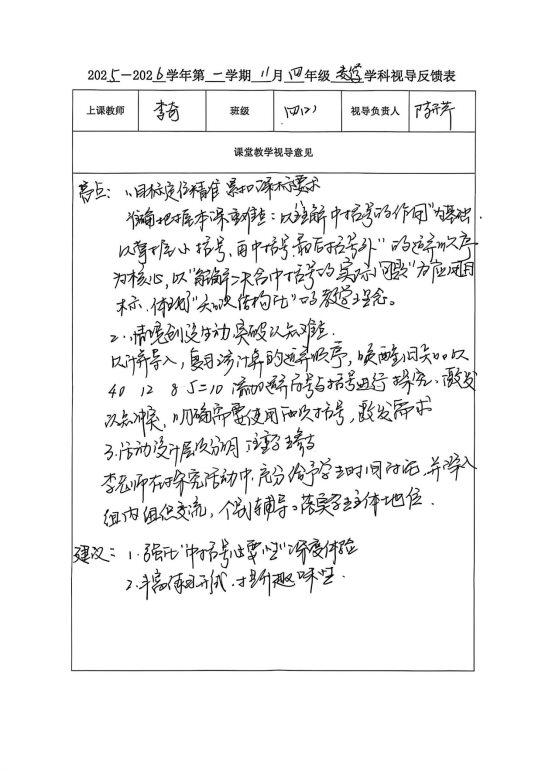 2025—2026学年第一学期11月四年级数学学科视导反馈表
上课教师 李奇 班级 四(2) 视导负责人 陈开芹
课堂教学视导意见
亮点：1.目标定位精准 紧扣课标要求
准确地把握本课重难点：以"理解中括号的作用"为基础，
以掌握"小括号，再中括号，最后括号外"的运算顺序
为核心，以"解决含中括号的实际问题"为应用目
标，体现"知识结构化"的教学理念。
2.情境创设生动 突破认知难点
以计算导入，复习该计算的运算顺序，唤醒旧知。以
40 12 8 5=10 添加运算符号与括号进行探究，激发
认知冲突，明确需要使用两次括号，激发需求
3.活动设计层次分明 注重学生参与
李老师在探究活动中，充分给予学生时间讨论，并深入
组内组织交流，个别辅导。落实学生主体地位。
建议：1.强化"中括号必要性"深度体验
2.丰富练习形式，提升趣味性.